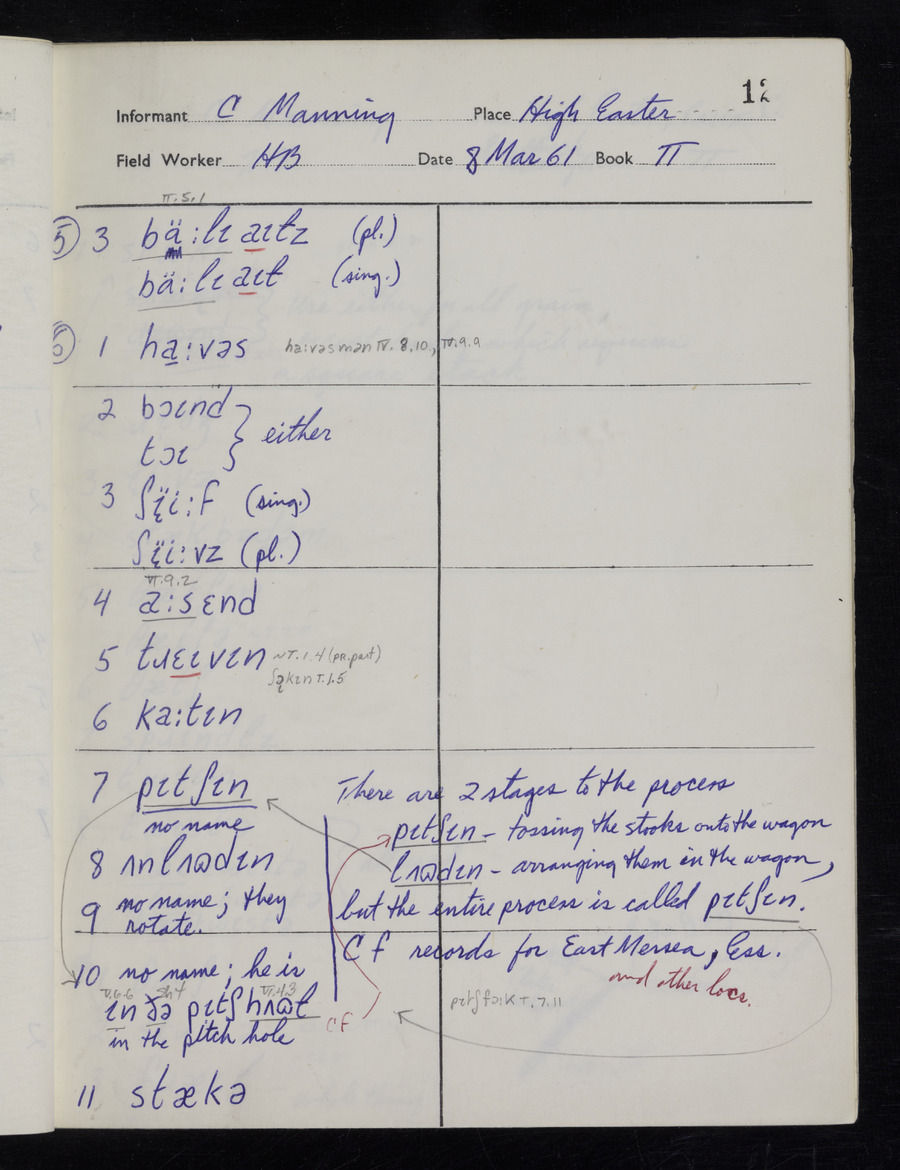 12
Informant C Manning Place High Easter
Field Worker HB Date 8 Mar 61 Book II
II.5.1
⑤ 3 bä:lɩ aɩtz (pl.)
bä:lɩ aɩt (sing.)
⑥ 1 ha̠:vəs ha:vəsmən IV. 8.10., IV.9.9
2 bɔɩnd } either
tɔɩ
3 ʃï̞i:f (sing.)
ʃï̞i:vz (pl.)
VI.9.2
4 a:sɛnd
5 tɹɛɩvɩn VI.1.4 (pr.part)
ʃə̨kɩn I.1.5
6 ka:tɩn
7 pɩtʃɩn
no name
8 ʌnlʌɷdɩn
9 no name; they
rotate.
10 no name; he is
V.6.6 VI.4.3
ɩn ðə pɩtʃ hʌɷl
in the pitch hole
11 stækə
There are 2 stages to the process
pɩtʃɩn – tossing the stooks onto the wagon
lʌɷdɩn – arranging them in the wagon,
but the entire process is called pɩtʃɩn.
Cf records for East Mersea, Ess.
and other locs.
cf
pɩtʃfɔ:k I.7.11